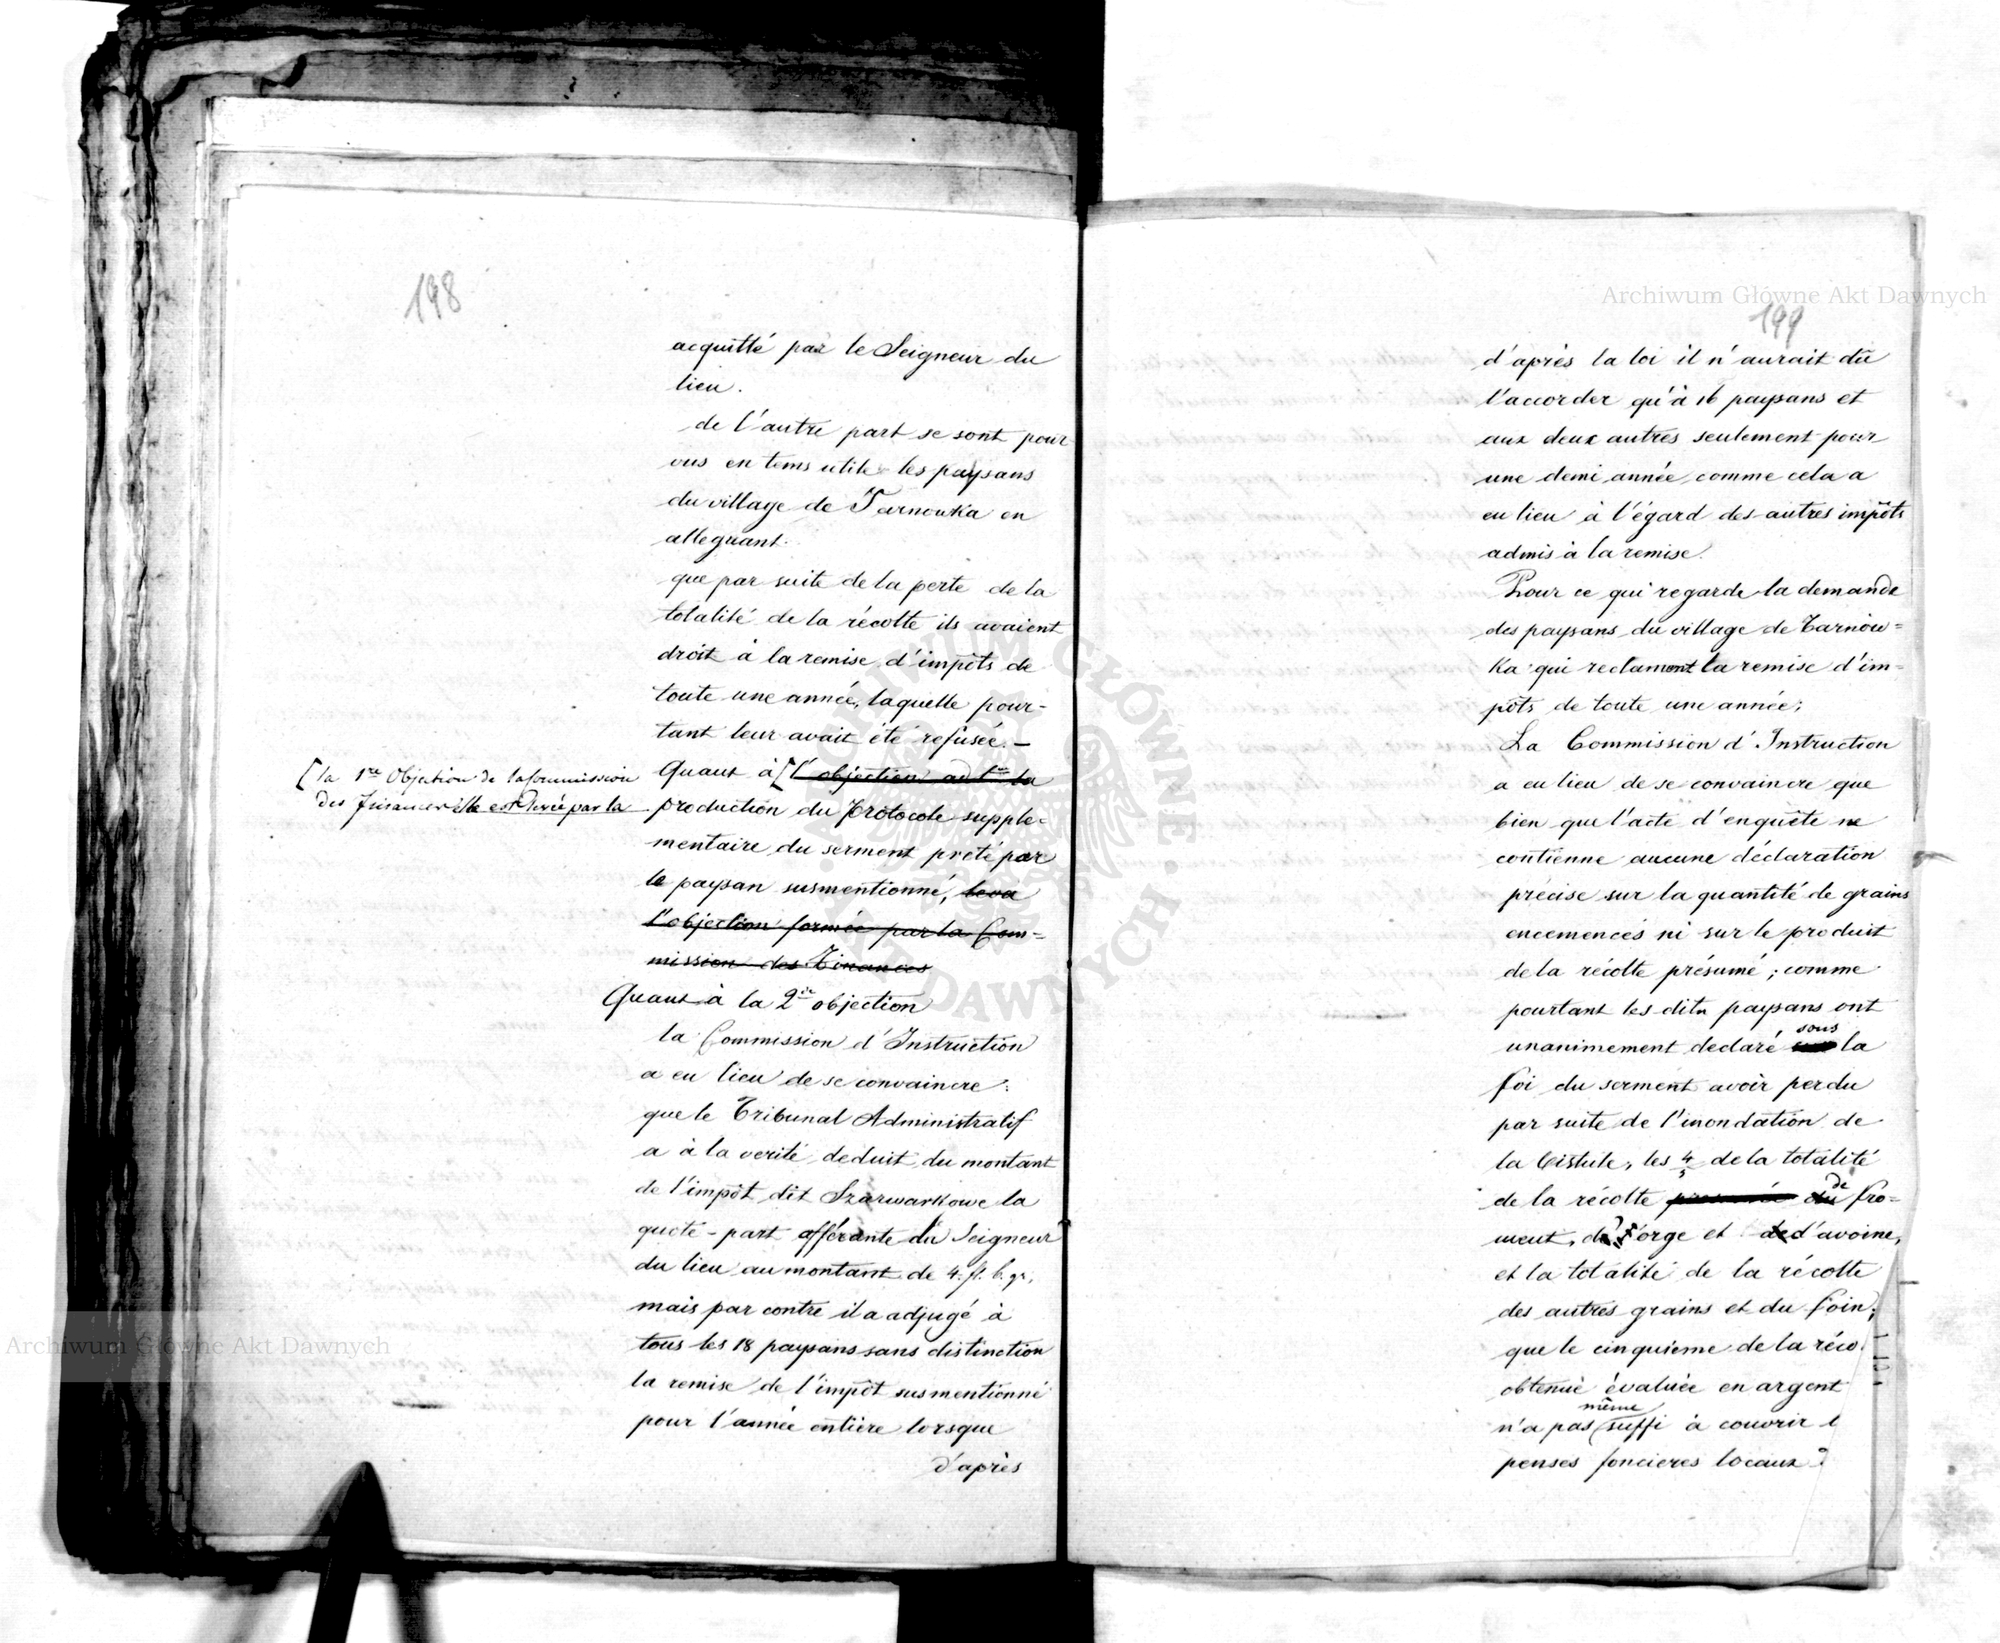 198
acquitté par le Seigneur du
lieu.
de l'autre part se sont pour
vus en tems utile les paysans
du village de Tarnowka en
alleguant.
que par suite de la perte de la
totalité de la récolte ils avaient
droit à la remise d'impôts de
toute une année, laquelle pour-
tant leur avait été refusée.—
[la 1re Objection de la Commission
des Finances elle est levée par la
Quant à [l'objection ad 1um la
production du Protocole supple-
mentaire du serment preté par
le paysan susmentionné, leva
l'objection formée par la Com-
mission des Finances
Quant à la 2de objection
la Commission d'Instruction
a eu lieu de se convaincre:
que le Tribunal Administratif
a à la verité deduit du montant
de l'impôt dit Szarwarkowe la
quote-part afférante du Seigneur
du lieu au montant de 4. fl. 6. gr.
mais par contre il a adjugé à
tous les 18 paysans sans distinction
la remise de l'impôt susmentionné
pour l'année entière lorsque
d'après
Archiwum Główne Akt Dawnych
199
d'après la loi il n'aurait dû
l'accorder qu'à 16 paysans et
aux deux autres seulement pour
une demi année comme cela a
eu lieu à l'égard des autres impôts
admis à la remise.
Pour ce qui regarde la demande
des paysans du village de Tarnow=
Ka qui reclament la remise d'im=
pôts de toute une année;
La Commission d'Instruction
a eu lieu de se convaincre que
bien que l'acte d'enquête ne
contienne aucune déclaration
précise sur la quantité de grains
encemencés ni sur le produit
de la récolte présumé; comme
pourtant les dits paysans ont
unanimement declaré sous la
foi du serment avoir perdu
par suite de l'inondation de
la Vistule, les 4/5 de la totalité
de la récolte présumée du de fro=
ment, de l'orge et de d'avoine,
et la totalité de la récolte
des autres grains et du foin;
que le cinquieme de la réco
obtenue évaluée en argent
n'a pas même suffi à couvrir
penses foncieres locaux
Archiwum Główne Akt Dawnych
ARCHIWUM GŁÓWNE AKT DAWNYCH